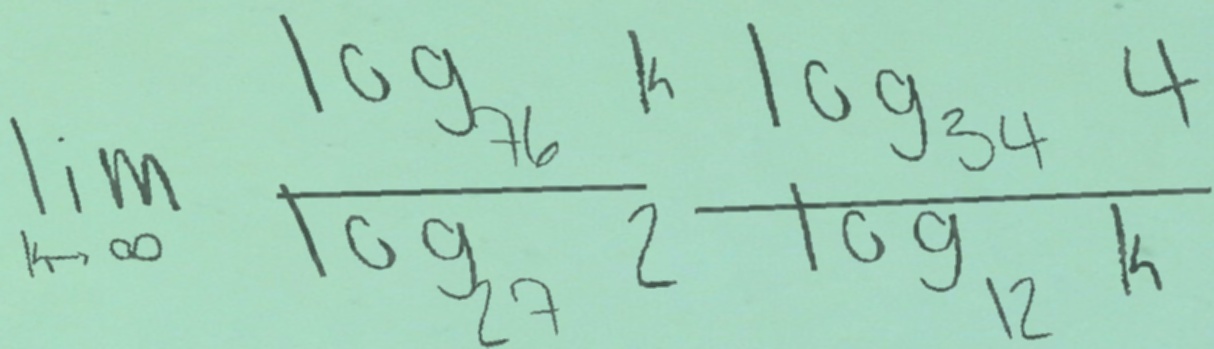 lim_{k→∞} \frac{log_{76} k}{log_{27} 2} \frac{log_{34} 4}{log_{12} k}